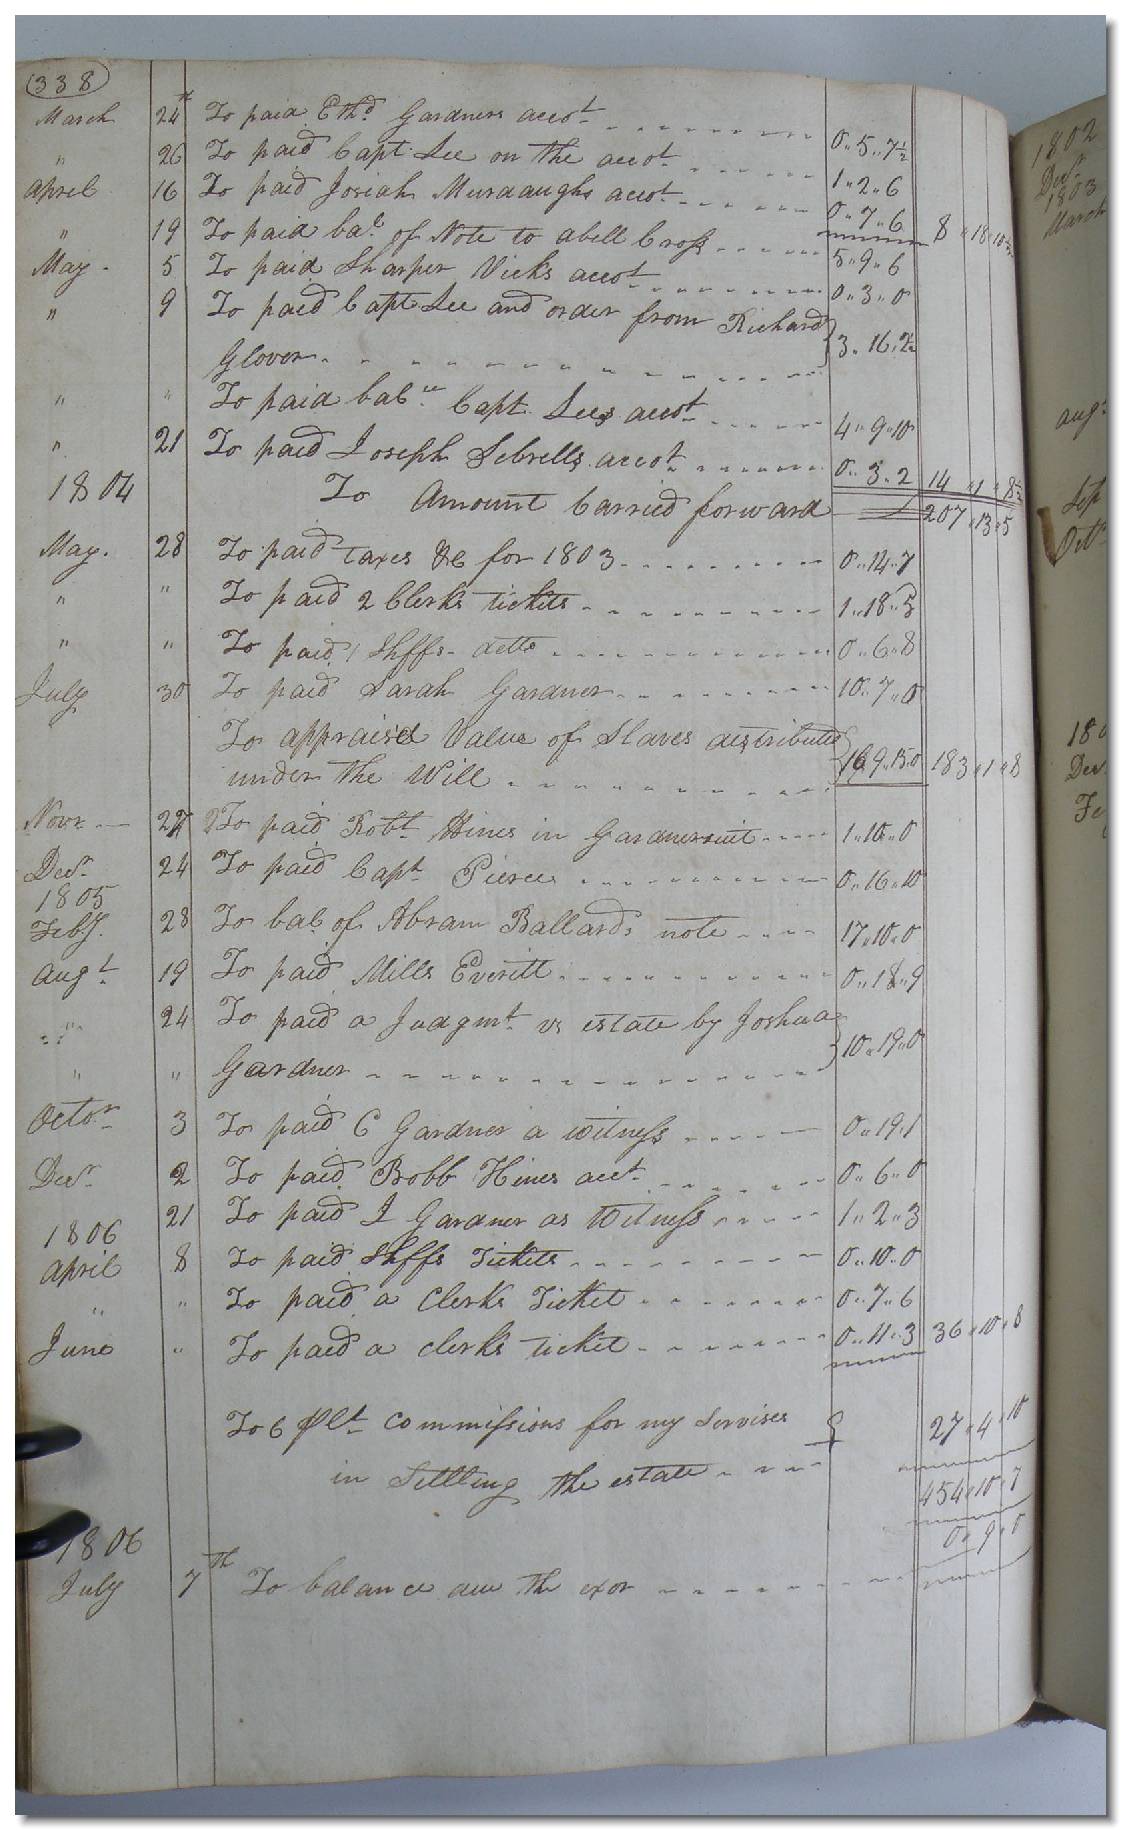 338
March 24th To paid Ethd Gardners accot 0..5..7½
" 26 To paid Capt. Lee on the accot 1..2..6
April 16 To paid Josiah Murdaughs accot 0..7..6 8..18..10½
" 19 To paid bale of Note to abell Cross 5..9..6
May 5 To paid Sharper Vicks accot 0..3..0
" 9 To paid Capt Lee and order from Richard
Glover 3..16..2½
" " To paid bale Capt. Lees accot 4..9..10
" 21 To paid Joseph Sebrells accot 0..3..2 14..1..8½
1804 To Amount Carried forward 207..13..5
May. 28 To paid taxes &c for 1803 0..14..7
" " To paid 2 Clerks tickets 1..18..5
" " To paid 1 Shffs ditto 0..6..8
July 30 To paid Sarah Gardner 10..7..0
To appraised Value of Slaves distributed
under the Will 169..15..0 183..1..8
Novr 27 To paid Robt Hines in Gardner suit 1..10..0
Decr 24 To paid Capt. Pierce 0..16..10
1805
Feby. 28 To bal of Abram Ballards note 17..10..0
Augt 19 To paid Mills Everitt 0..18..9
" 24 To paid a Judgmt vs estate by Joshua
" " Gardner 10..19..0
Octor 3 To paid C Gardner a witness 0..19..1
Decr 2 To paid Robb Hines acct 0..6..0
21 To paid J Gardner as Witness 1..2..3
1806
April 8 To paid Shffs Tickets 0..10..0
" " To paid a Clerks Ticket 0..7..6
June " To paid a clerks ticket 0..11..3 36..10..8
To 6 P Ct commissions for my Servises
in Settling the estate 27..4..10
454..10..7
1806 0..9..0
July 7th To balance due the exor
1802
Decr
1803
March
Augt
Sep
Octr
Decr